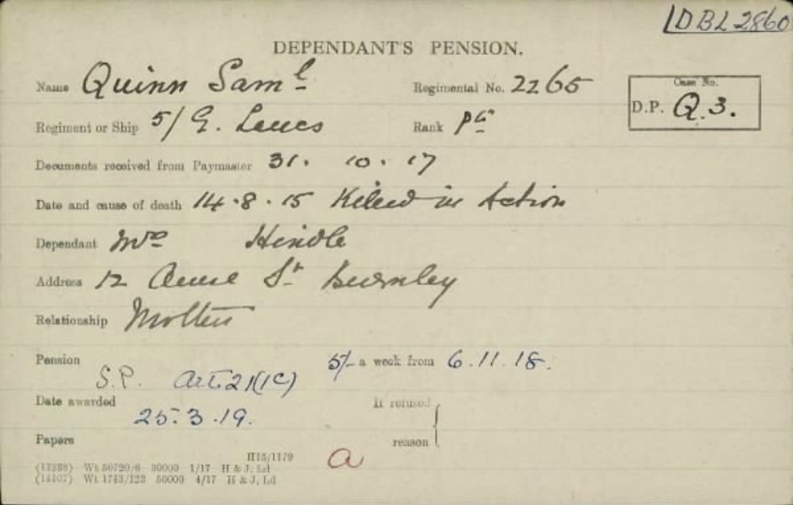 DBL2860
DEPENDANT'S PENSION.
Name Quinn Saml Regimental No. 2265 Case No.
Regiment or Ship 5/ E. Lancs Rank Pte D.P. Q.3.
Documents received from Paymaster 31. 10. 17
Date and cause of death 14.8.15 Killed in Action
Dependant Mrs Hindle
Address 12 Anne St Burnley
Relationship Mother
Pension 5/- a week from 6.11.18.
S.P. Art.21(1C)
Date awarded 25.3.19. If refused
Papers reason
H15/1179 a
(11288) Wt 50720/6 30000 1/17 H & J, Ld
(14107) Wt 1743/123 50000 4/17 H & J, Ld